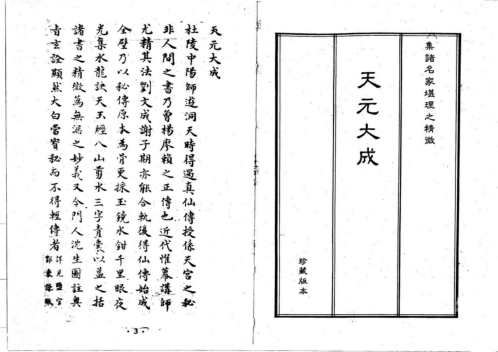 集諸名家堪理之精微
天元大成
珍藏版本
天元大成
杜陵中陽師遊洞天時得遇真仙傳授係天宮之秘
非人間之書乃曾楊廖賴之正傳也近代惟幕講師
尤精其法劉文成謝子期亦能合軌後得仙傳始成
全璧乃以秘傳原本為骨更採玉鏡水鉗千里眼夜
光集水龍訣天玉經八山剪水三字青囊以益之括
諸書之精微為無漏之妙義又令門人沈生圖註與
音言詮顯然大白當寶秘而不得輕傳者
·3·